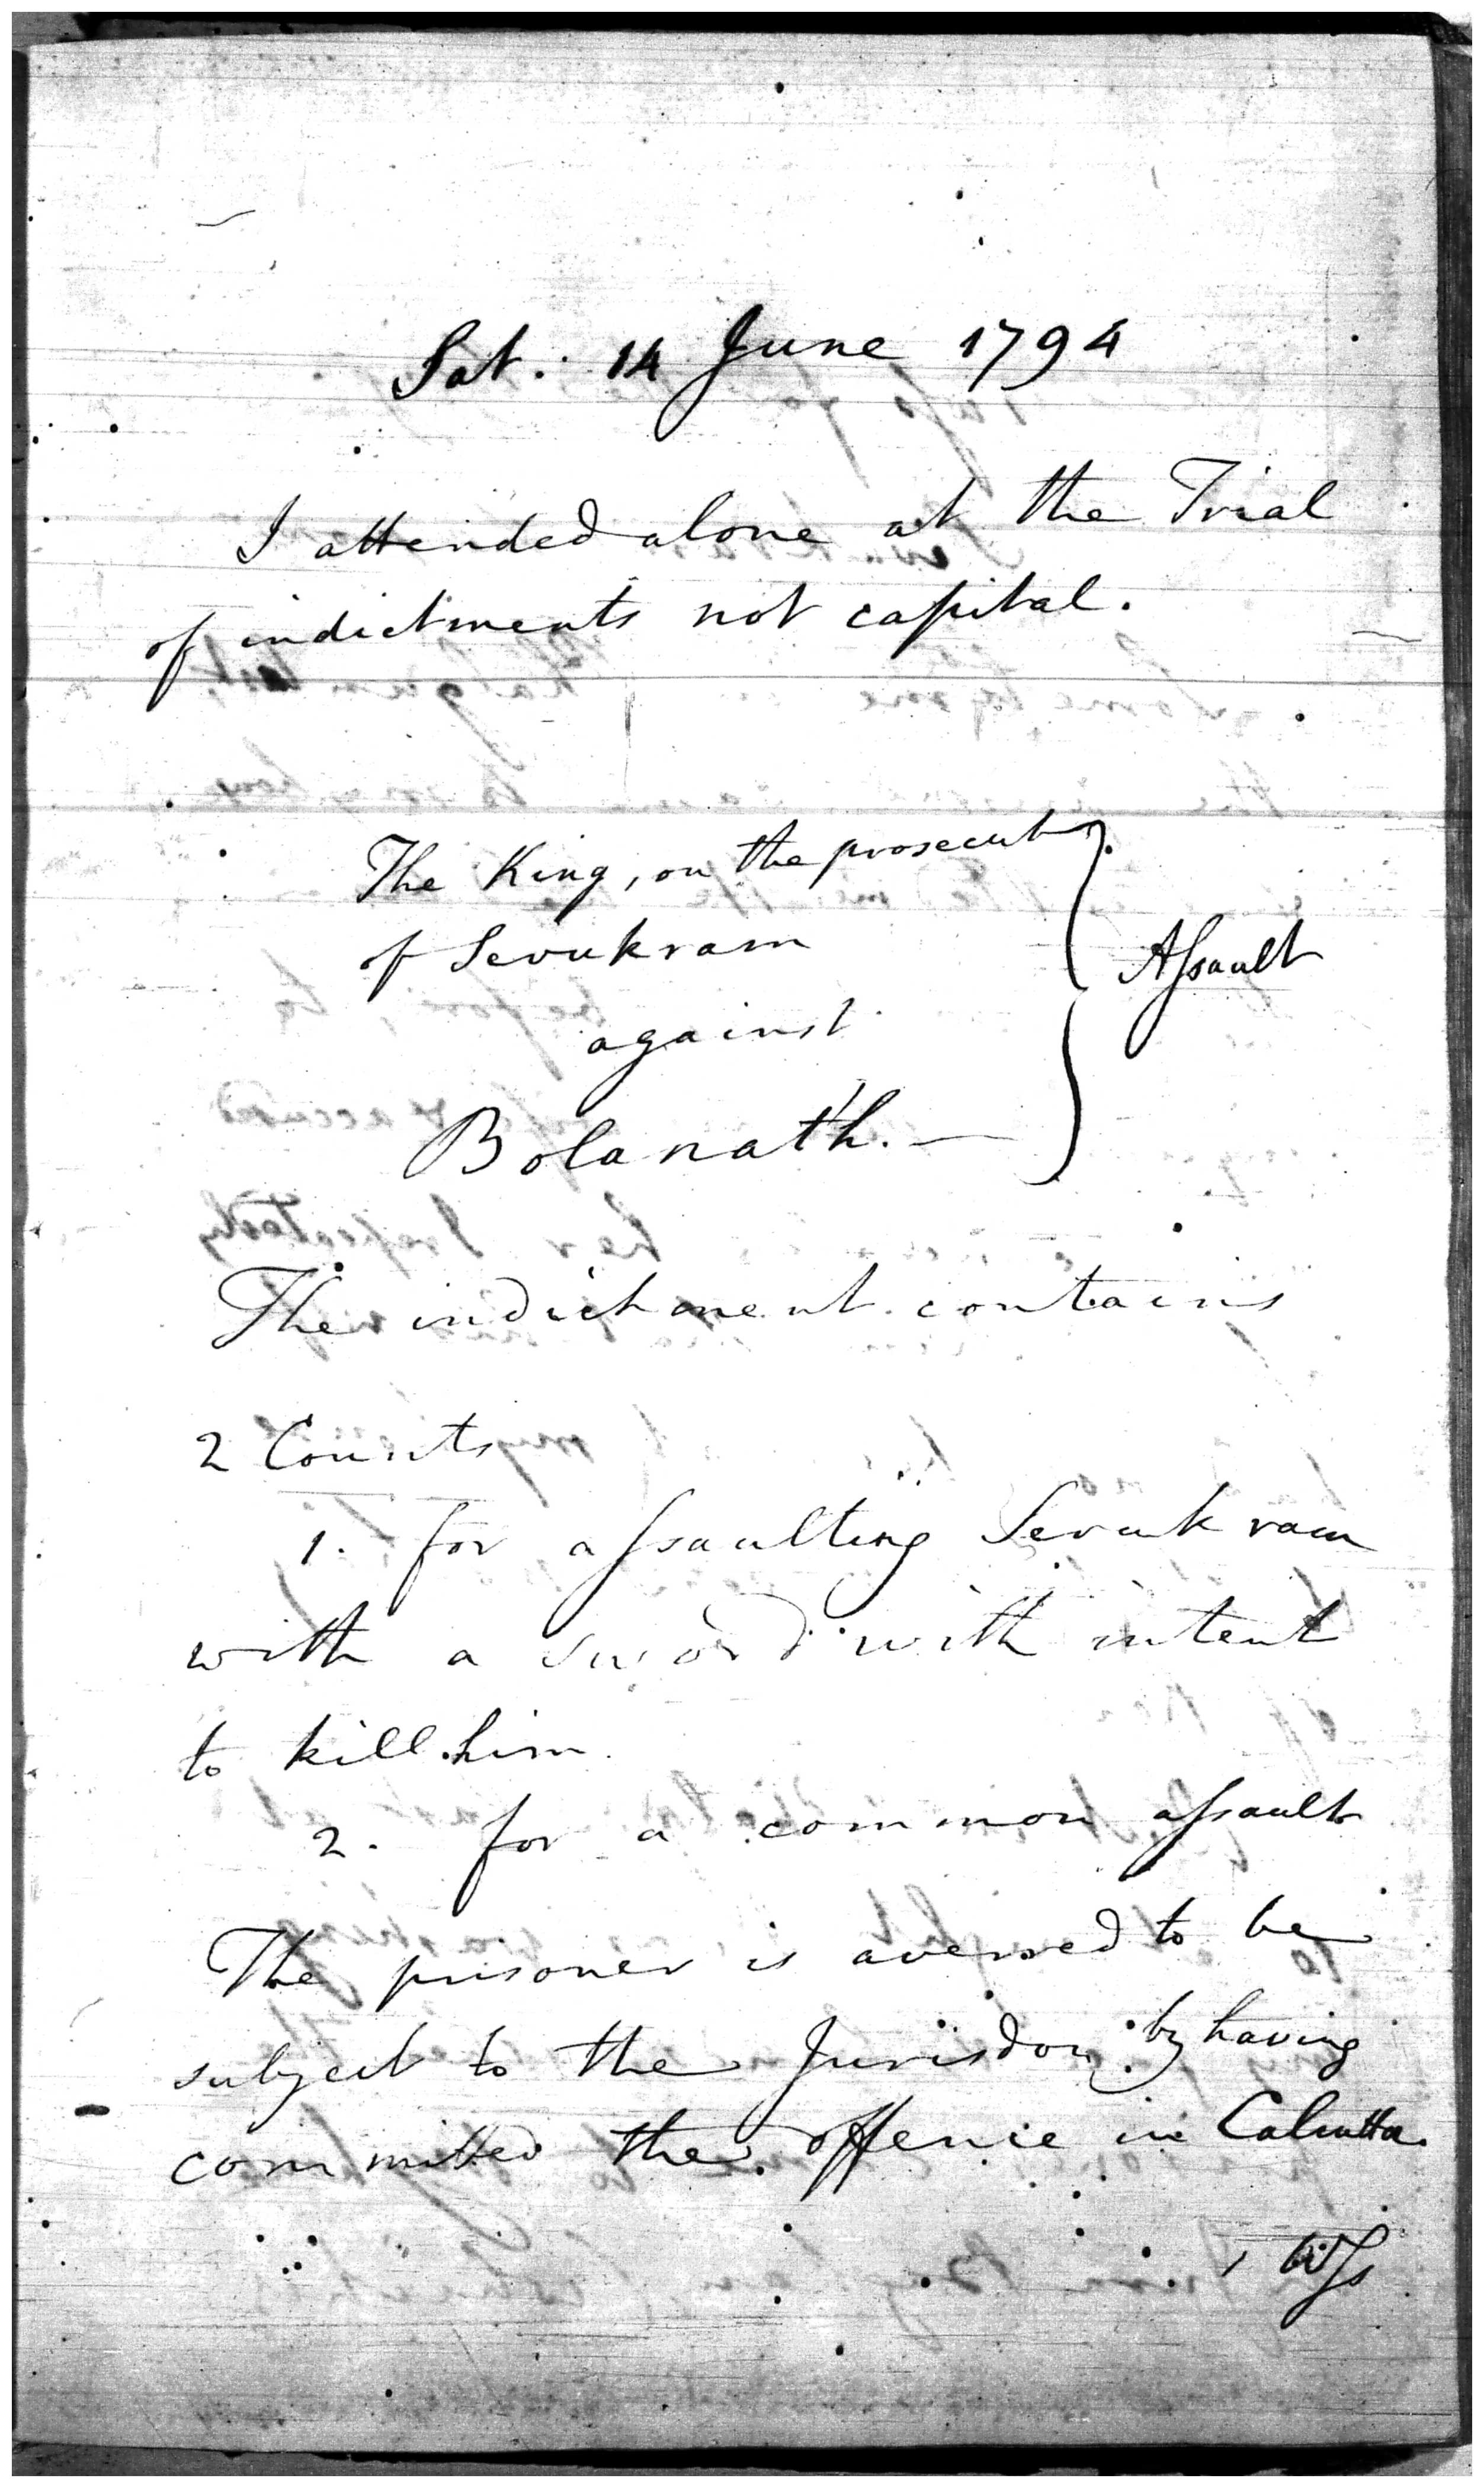 Sat. 14 June 1794
I attended alone at the Trial
of indictments not capital.
The King, on the prosecutn.
of Sevukram
against
Bolanath. —
Aſsault
The indictment contains
2 Counts
1. for aſsaulting Sevukram
with a sword with intent
to kill him.
2. for a common aſsault
The prisoner is averred to be
subject to the Jurisdon. by having
committed the offence in Calcutta.
Wſs